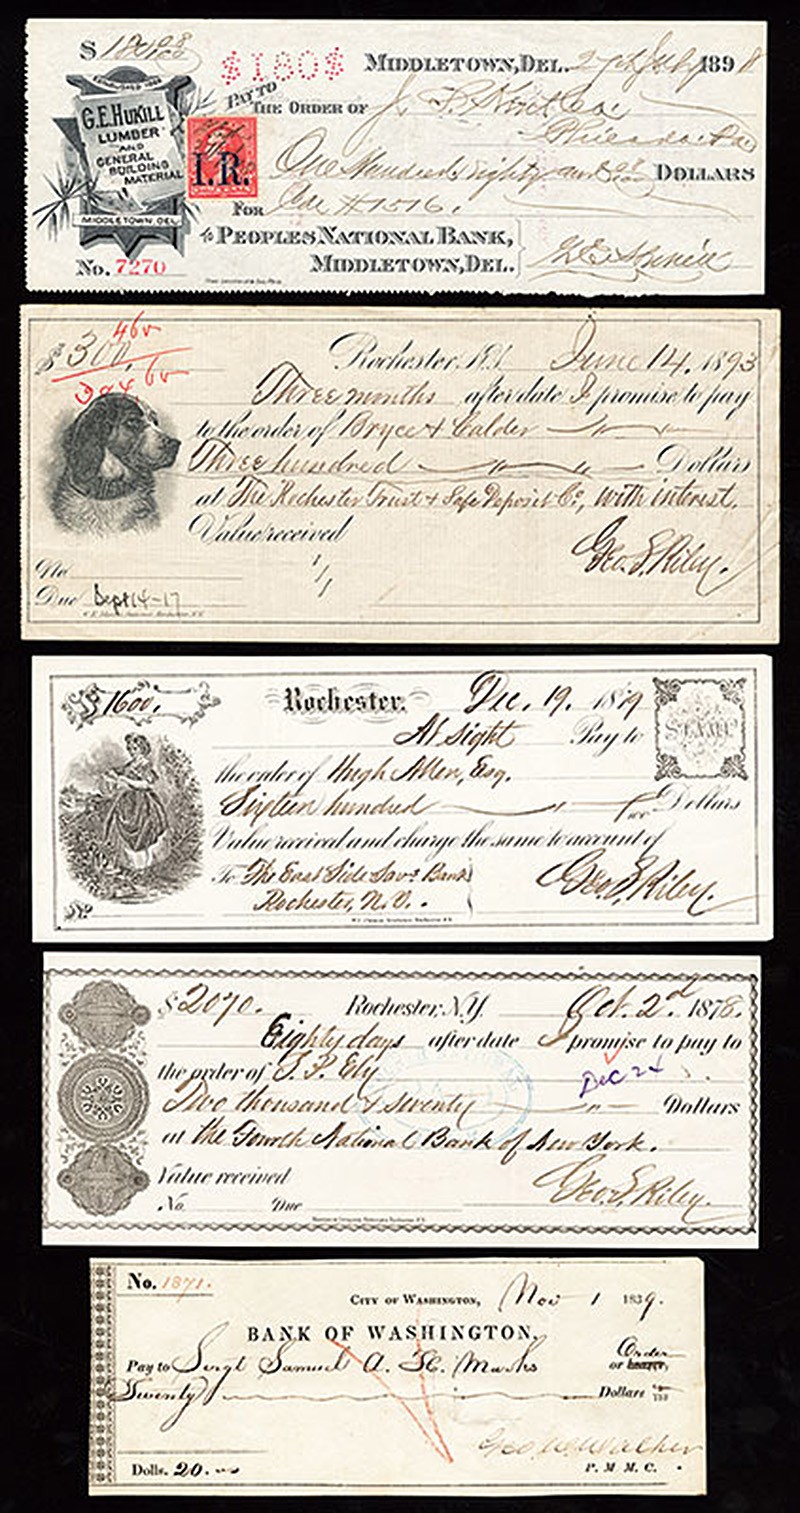 $ 180 98/100
$180$
MIDDLETOWN, DEL. July 1898
ESTABLISHED
G.E. HUKILL
LUMBER
AND
GENERAL
BUILDING
MATERIAL
MIDDLETOWN, DEL.
PAY TO
THE ORDER OF J.
I.R.
One Hundred Eighty and 98/100 DOLLARS
FOR #1516.
To PEOPLES NATIONAL BANK,
MIDDLETOWN, DEL.
No. 7270
G.E. Hukill
$ 300.
4 60
304 60
Rochester, N.Y. June 14, 1893
Three months after date I promise to pay
to the order of Bryce & Calder
Three hundred Dollars
at The Rochester Trust & Safe Deposit Co, with interest.
Value received
Geo. S. Riley.
No
Due Sept 14-17
$ 1600.
Rochester. Dec. 19. 1879
STAMP
At Sight Pay to
the order of Hugh Allen, Esq.
Sixteen hundred Dollars
Value received and charge the same to account of
To The East Side Savs Bank
Rochester, N.Y.
Geo. S. Riley.
No.
$ 2070. Rochester, N.Y. Oct. 2d 1878.
Eighty days after date I promise to pay to
the order of S. P. Ely
Dec 24
Two thousand & seventy Dollars
at the Fourth National Bank of New York.
Value received
No. Due
Geo. S. Riley.
No. 1871.
CITY OF WASHINGTON, Nov 1 1839.
BANK OF WASHINGTON,
Pay to Sergt Samuel A. Marks Order
or bearer,
Twenty Dollars
Geo. W. Walker
Dolls. 20.
P. M. M. C.